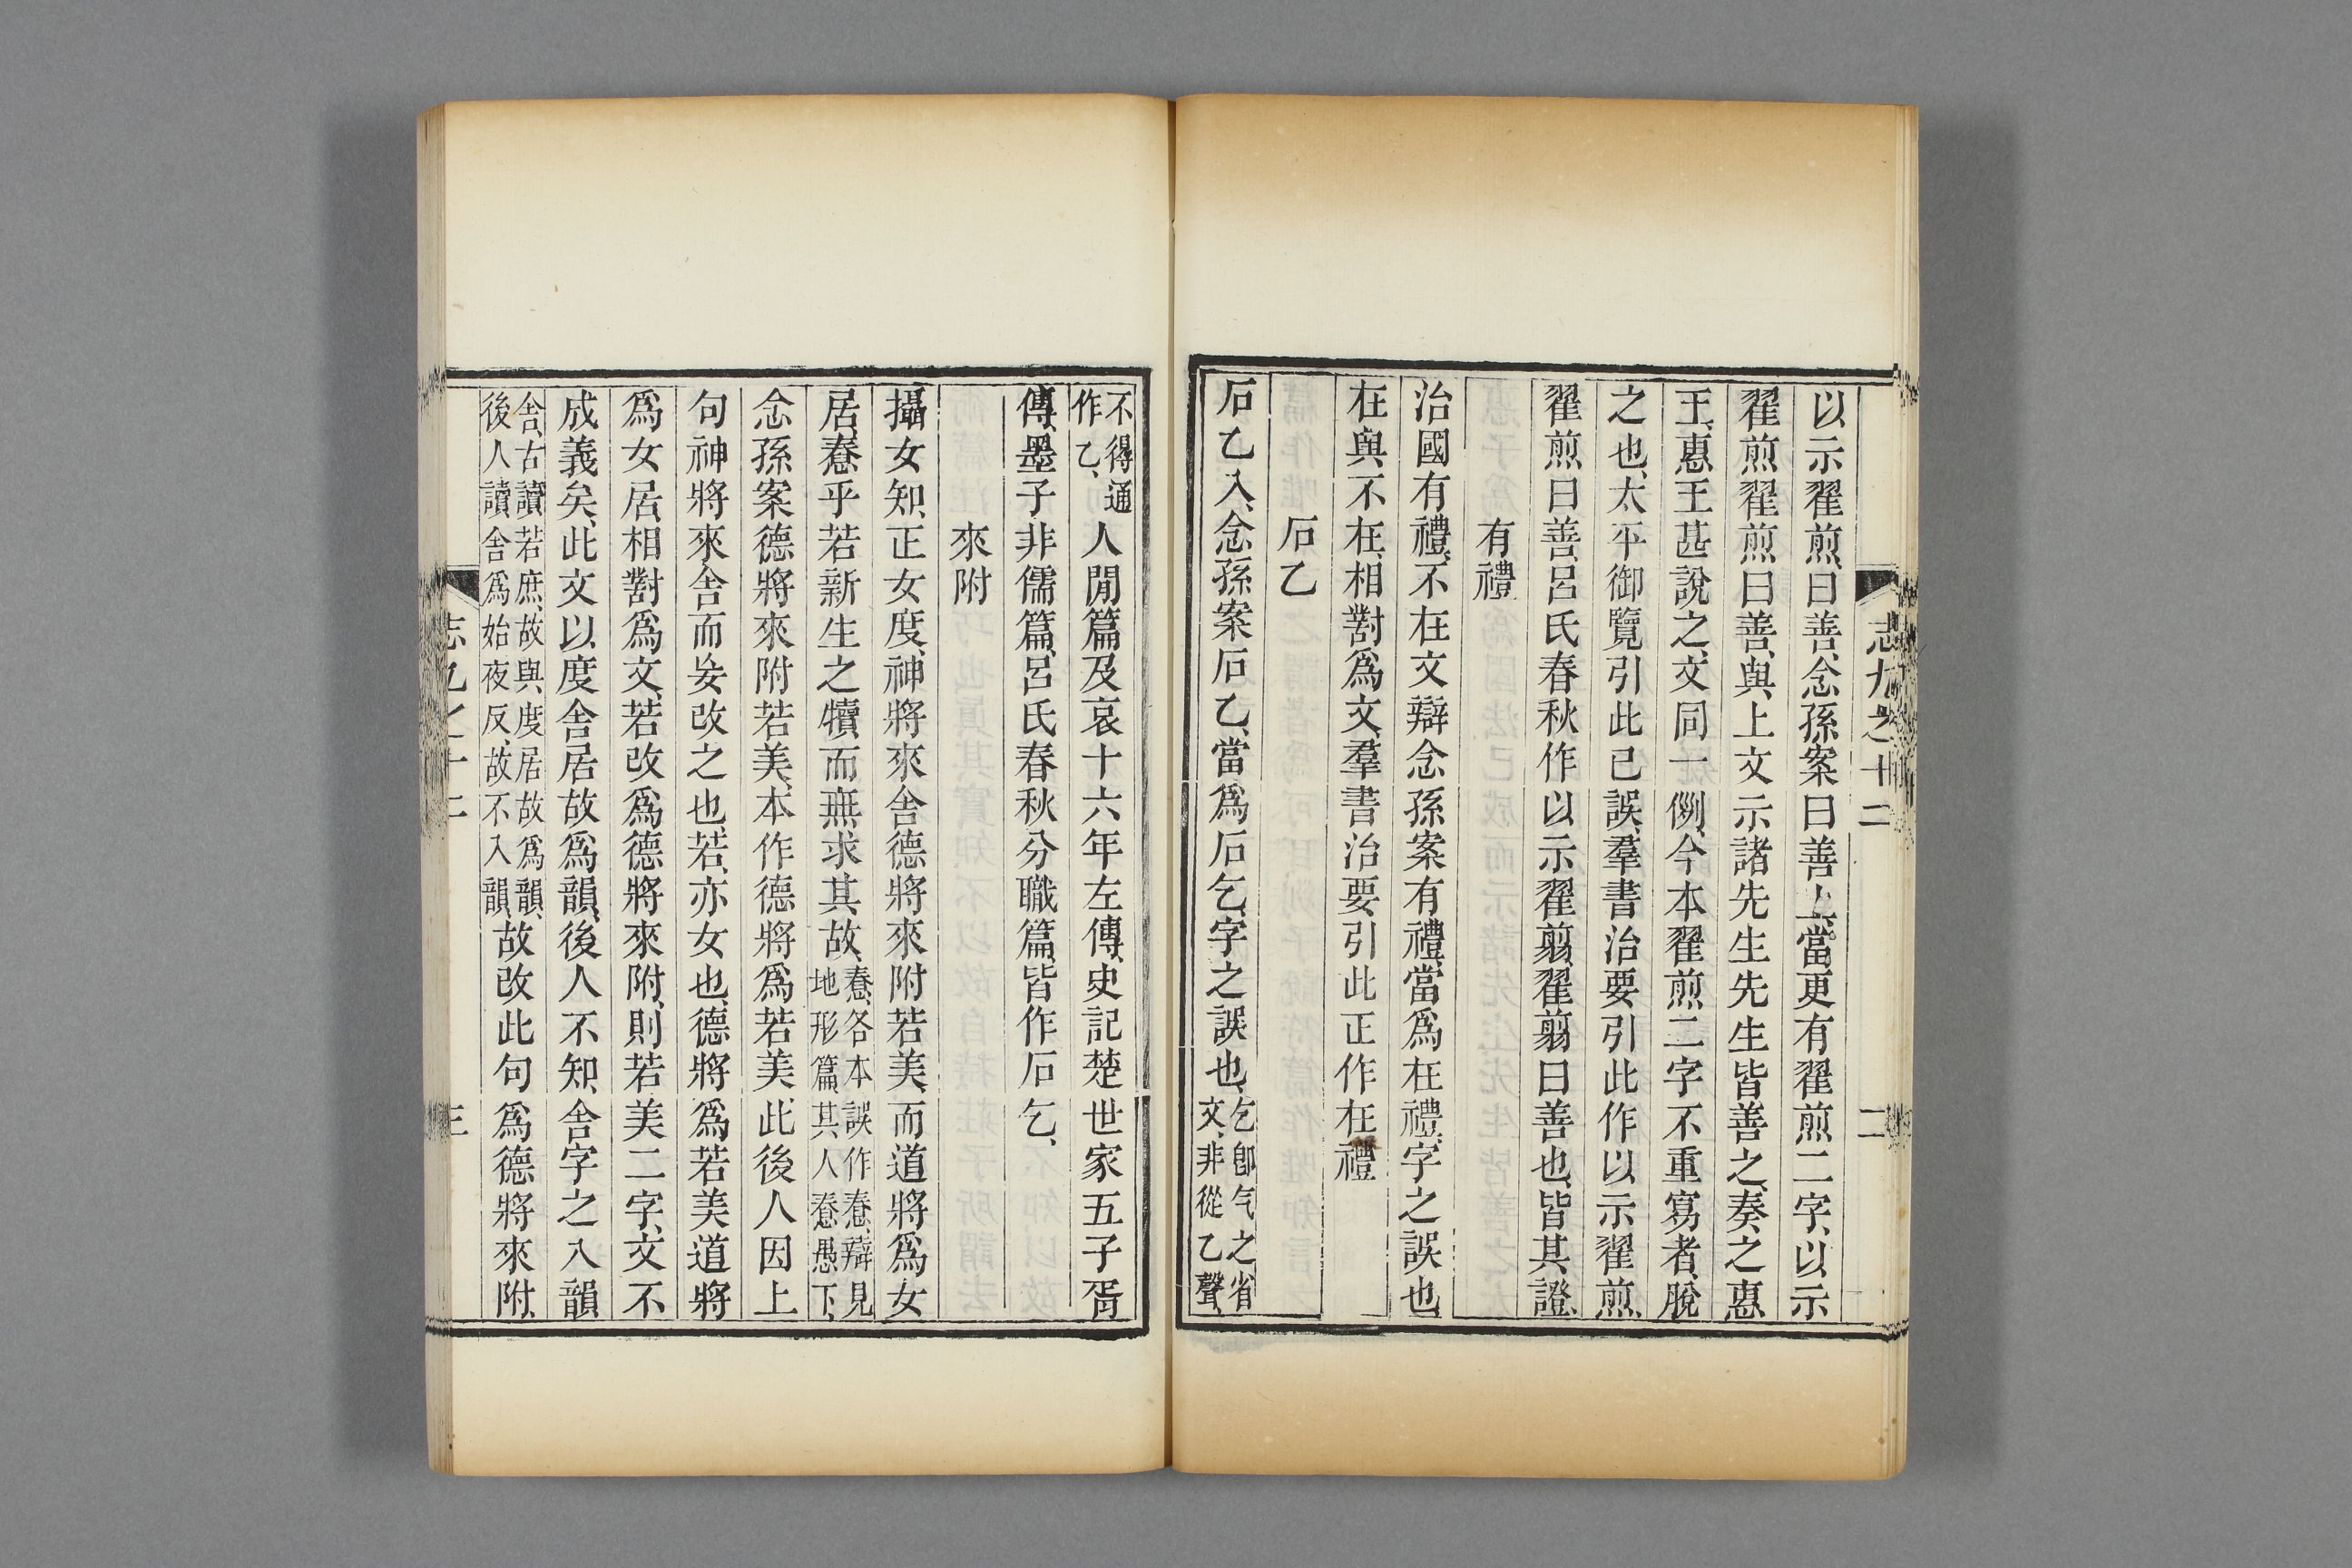 志九之十二
二
以示翟煎、曰善、念孫案曰善上、當更有翟煎二字、以示
翟煎翟煎曰善、與上文示諸先生先生皆善之、奏之惠
王、惠王甚說之、文同一例、今本翟煎二字不重寫者脫
之也、太平御覽引此已誤、羣書治要引此作以示翟煎、
翟煎曰善、呂氏春秋作以示翟翦、翟翦曰善也、皆其證、
有禮
治國有禮、不在文辯念孫案有禮當爲在禮、字之誤也、
在與不在、相對爲文、羣書治要引此正作在禮
石乙
石乙入、念孫案石乙、當爲石乞、字之誤也、乞卽气之省
文、非從乙聲、
不得通
作乙、人閒篇及哀十六年左傳、史記楚世家五子胥
傳、墨子非儒篇、呂氏春秋分職篇、皆作石乞、
來附
攝女知、正女度、神將來舍德將來附若美、而道將爲女
居、惷乎若新生之犢、而無求其故、惷、各本誤作憃、辯見
地形篇、其人惷愚下、
念孫案德將來附若美、本作德將爲若美、此後人因上
句神將來舍而妄改之也、若、亦女也、德將爲若美道將
爲女居、相對爲文、若改爲德將來附、則若美二字、文不
成義矣、此文以度舍居故爲韻、後人不知、舍字之入韻
舍、古讀若庶、故與度居故爲韻、
後人讀舍爲始夜反、故不入韻、故改此句爲德將來附、
志九之十二
三